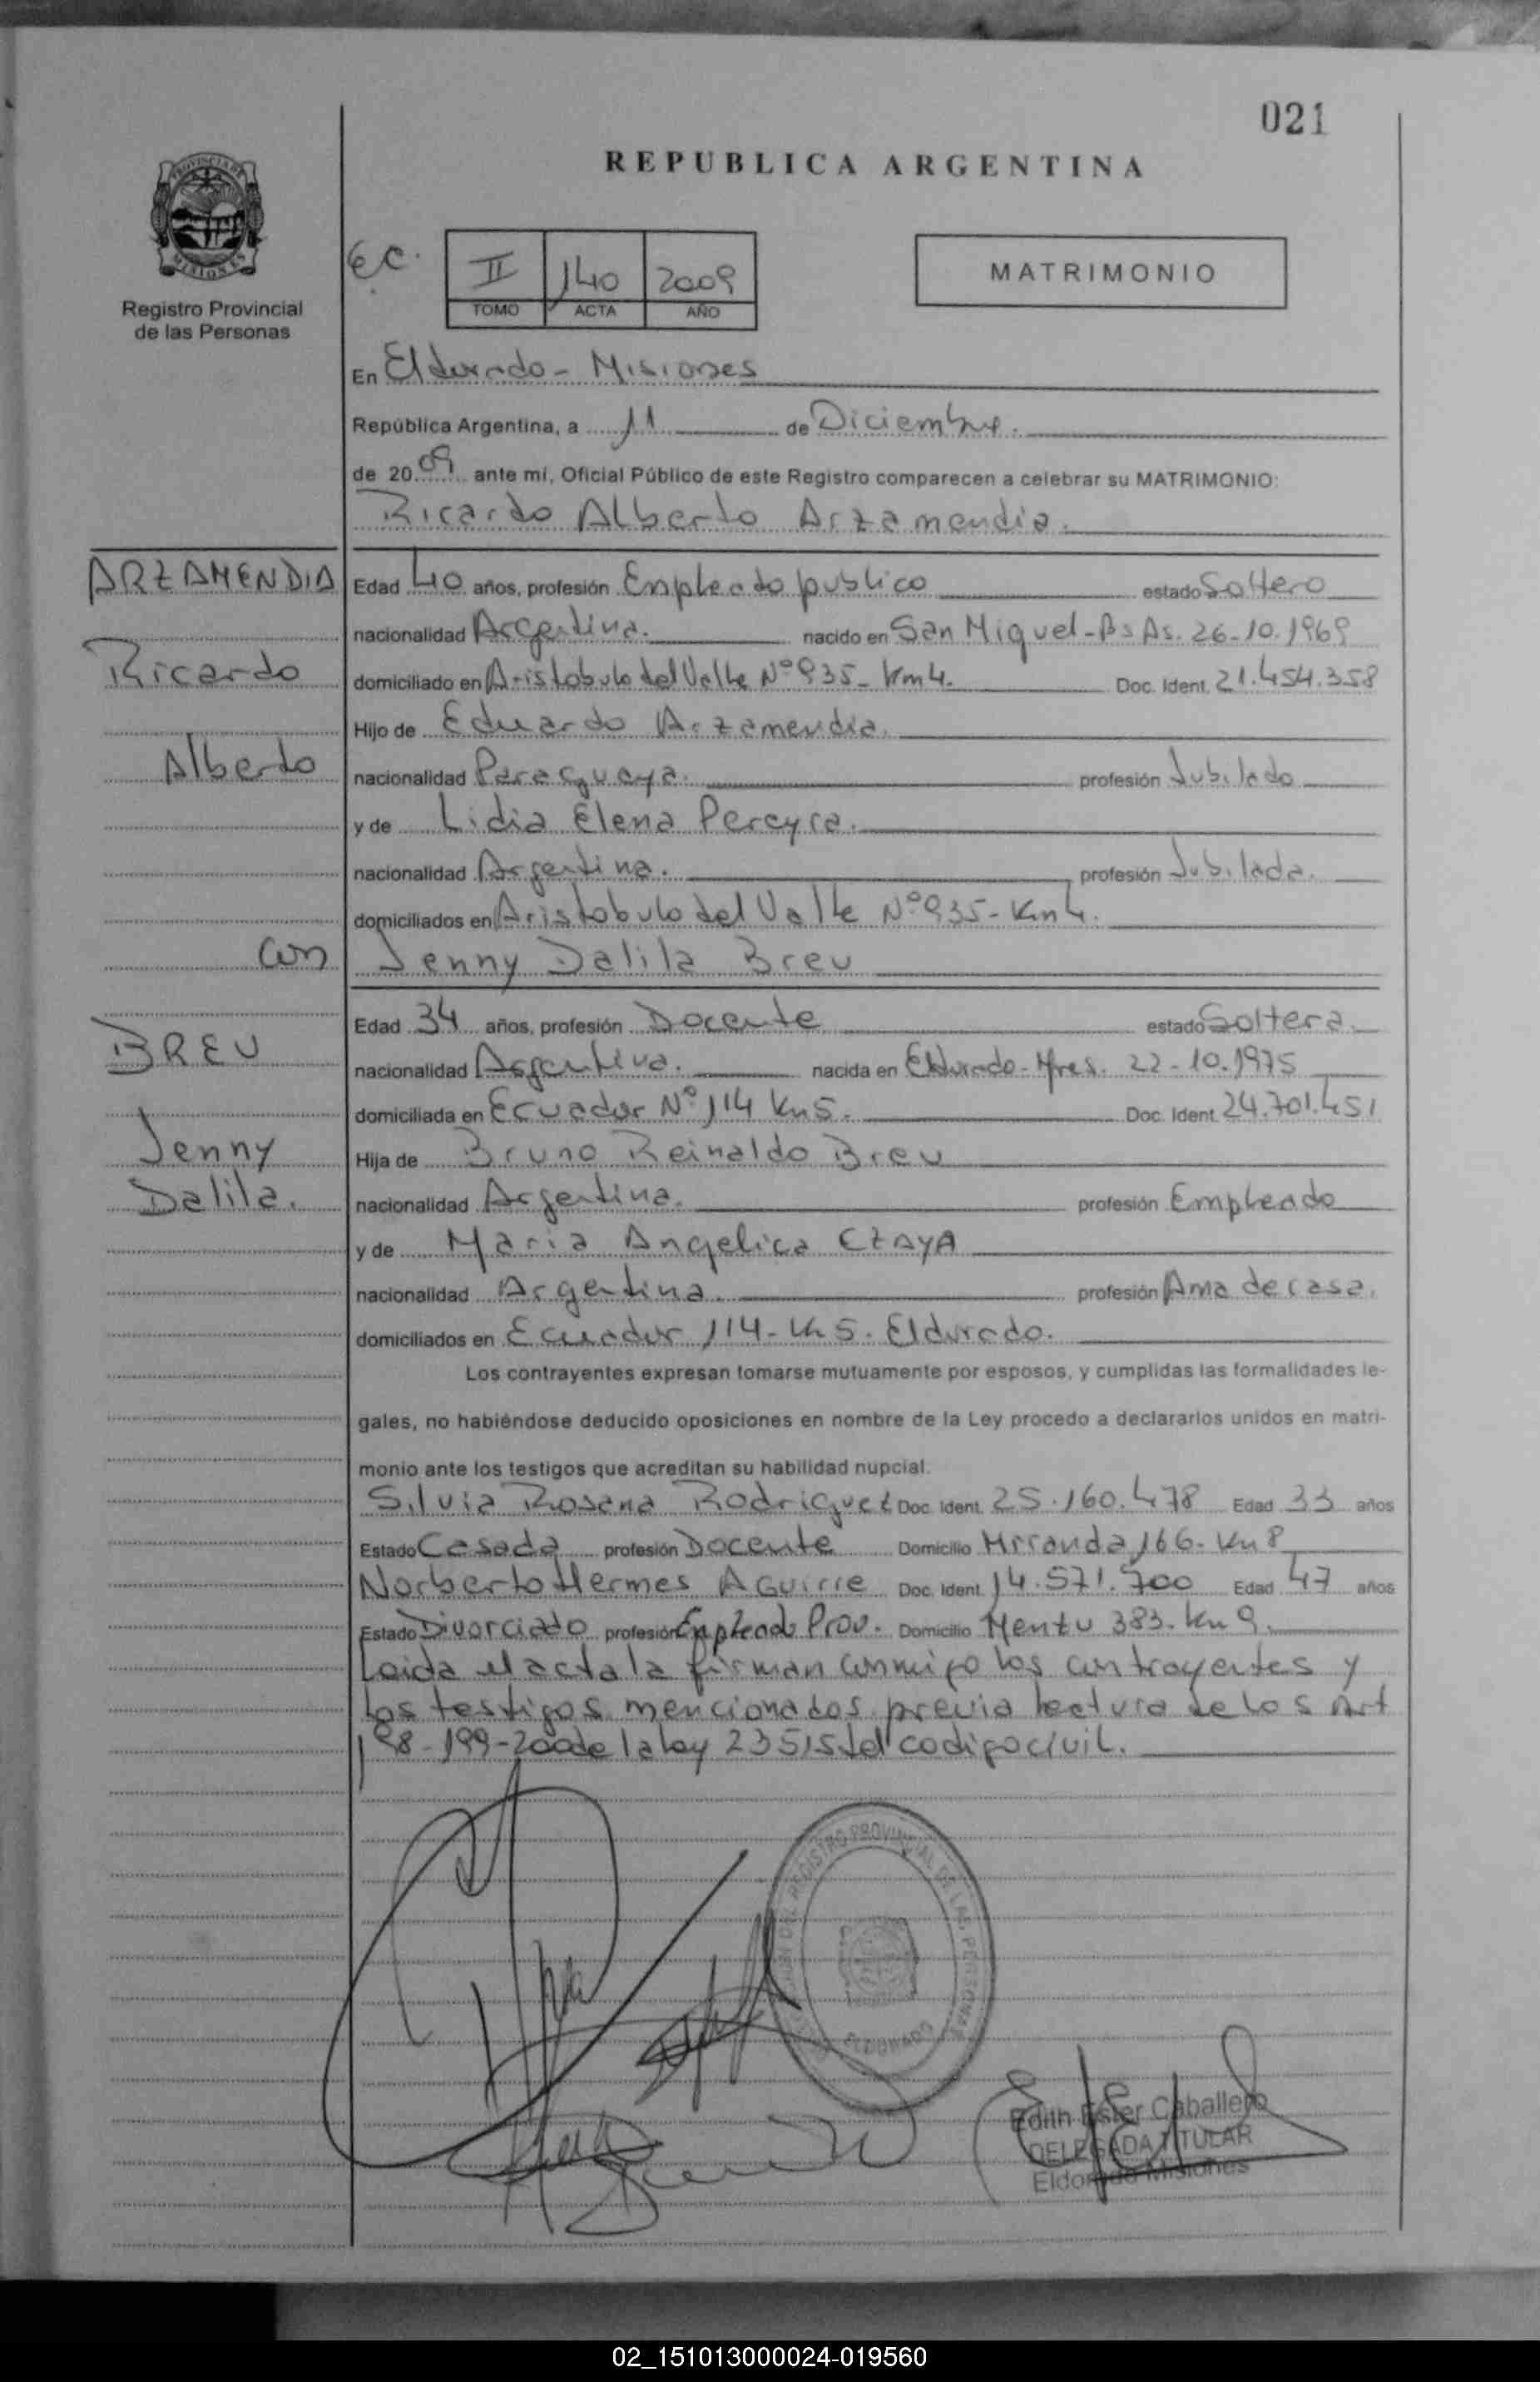 021
REPUBLICA ARGENTINA
PROVINCIA DE
MISIONES
Registro Provincial
de las Personas
E.C.
II 140 2009
TOMO ACTA AÑO
MATRIMONIO
En Eldorado - Misiones
República Argentina, a 11 de Diciembre.
de 2009 ante mí, Oficial Público de este Registro comparecen a celebrar su MATRIMONIO:
Ricardo Alberto Arzamendia.
ARZAMENDIA
Ricardo
Alberto
con
BREU
Jenny
Dalila.
Edad 40 años, profesión Empleado publico estado Soltero
nacionalidad Argentina. nacido en San Miguel - Bs As. 26-10.1969
domiciliado en Aristobulo del Valle Nº 935 - Km 4. Doc. Ident. 21.454.358
Hijo de Eduardo Arzamendia.
nacionalidad Paraguaya. profesión Jubilado
y de Lidia Elena Pereyra.
nacionalidad Argentina. profesión Jubilada.
domiciliados en Aristobulo del Valle Nº 935 - Km 4.
Jenny Dalila Breu
Edad 34 años, profesión Docente estado Soltera.
nacionalidad Argentina. nacida en Eldorado - Mnes. 22-10.1975
domiciliada en Ecuador Nº 114 Km 5. Doc. Ident. 24.701.451
Hija de Bruno Reinaldo Breu
nacionalidad Argentina. profesión Empleado
y de Maria Angelica CZAYA
nacionalidad Argentina. profesión Ama de casa.
domiciliados en Ecuador 114 - Km 5. Eldorado.
Los contrayentes expresan tomarse mutuamente por esposos, y cumplidas las formalidades le-
gales, no habiéndose deducido oposiciones en nombre de la Ley procedo a declararlos unidos en matri-
monio ante los testigos que acreditan su habilidad nupcial.
Silvia Rosana Rodriguez Doc. Ident. 25.160.478 Edad 33 años
Estado Casada profesión Docente Domicilio Miranda 166 - Km 8
Norberto Hermes Aguirre Doc. Ident. 14.571.700 Edad 47 años
Estado Divorciado profesión Empleado Prov. Domicilio Mentu 383. Km 9.
Leida el acta la firman conmigo los contrayentes y
los testigos mencionados previa lectura de los Art
198-199-200 de la ley 23515 del codigo civil.
REGISTRO PROVINCIAL DE LAS PERSONAS
ELDORADO
Edith Ester Caballero
DELEGADA TITULAR
Eldorado Misiones
02_151013000024-019560